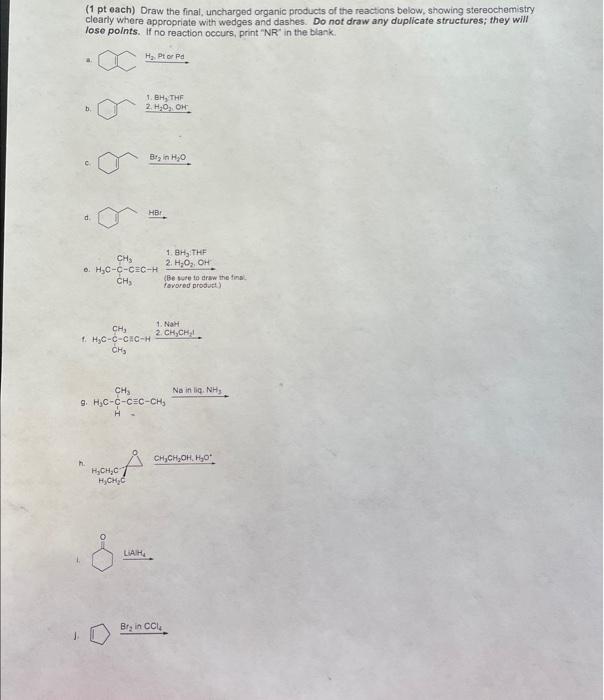 (1 pt each) Draw the final, uncharged organic products of the reactions below, showing stereochemistry
clearly where appropriate with wedges and dashes. Do not draw any duplicate structures; they will
lose points. If no reaction occurs, print "NR" in the blank.
a. H₂, Pt or Pd
b. 1. BH₃ THF
2. H₂O₂, OH⁻
c. Br₂ in H₂O
d. HBr
CH₃ 1. BH₃ THF
2. H₂O₂, OH⁻
e. H₃C-C-C≡C-H
CH₃ (Be sure to draw the final,
favored product.)
CH₃ 1. NaH
2. CH₃CH₂I
f. H₃C-C-C≡C-H
CH₃
CH₃ Na in liq. NH₃
g. H₃C-C-C≡C-CH₃
H
O
h. CH₃CH₂OH, H₃O⁺
H₃CH₂C
H₃CH₂C
O
i. LiAlH₄
j. Br₂ in CCl₄